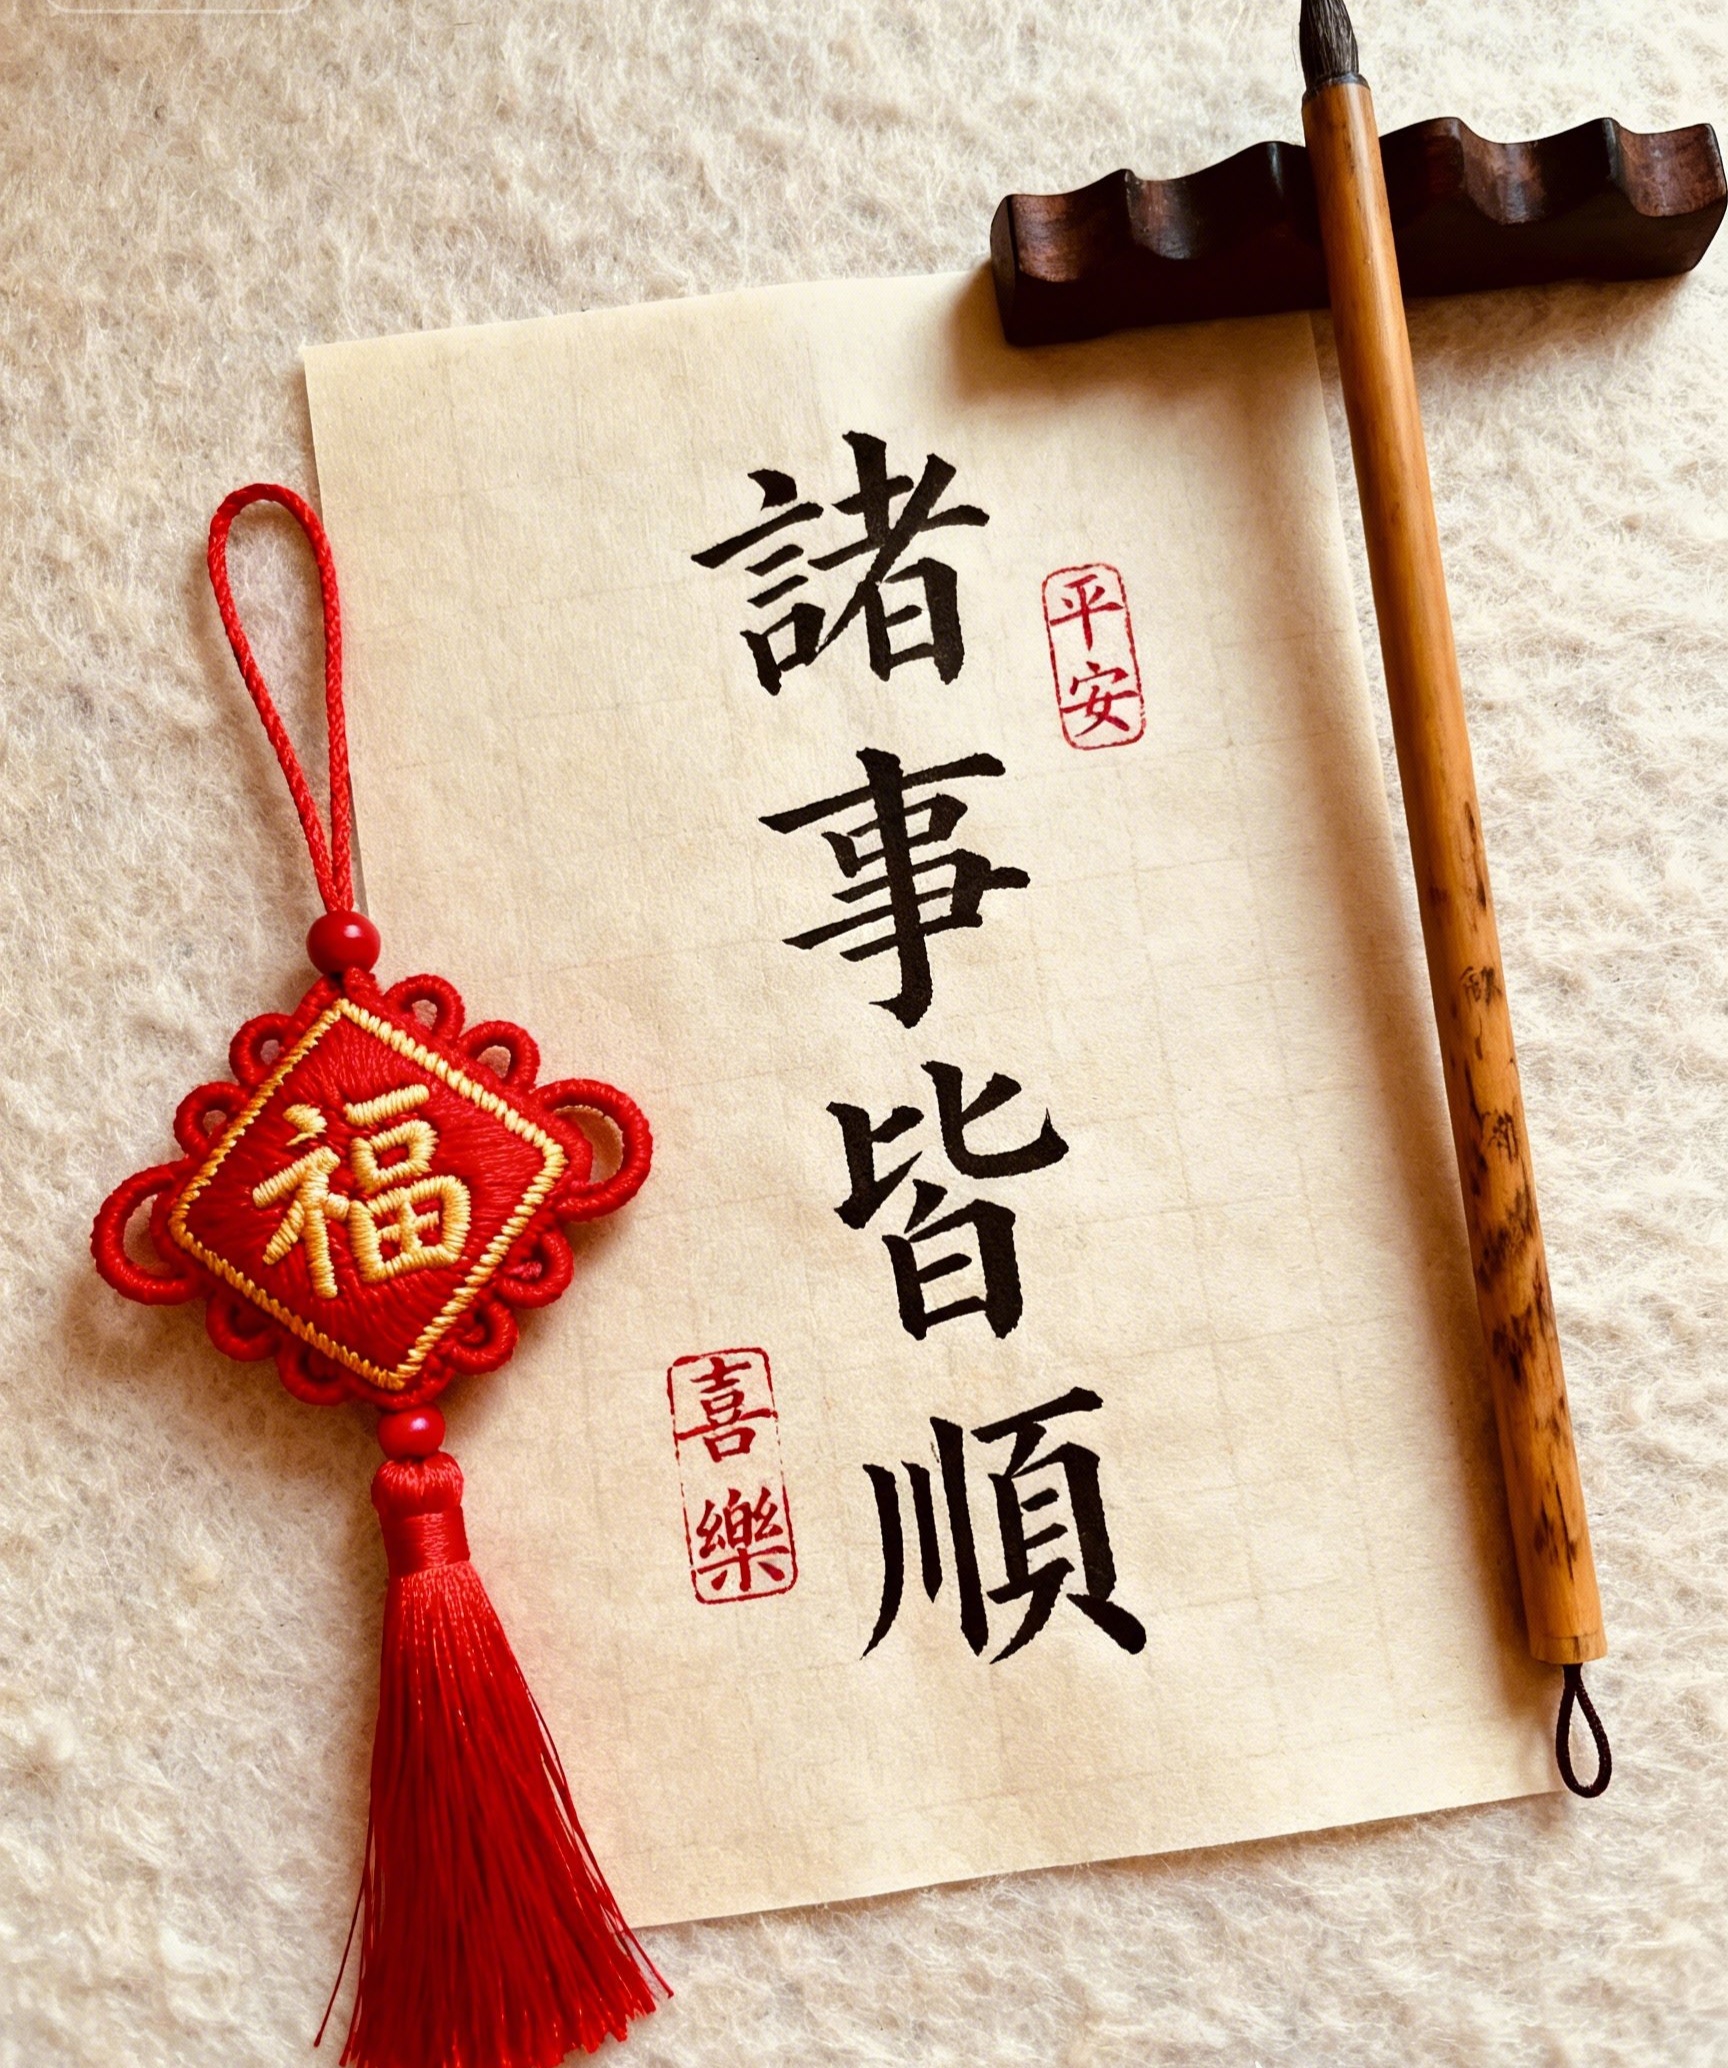 諸事皆順
平安
喜樂
福